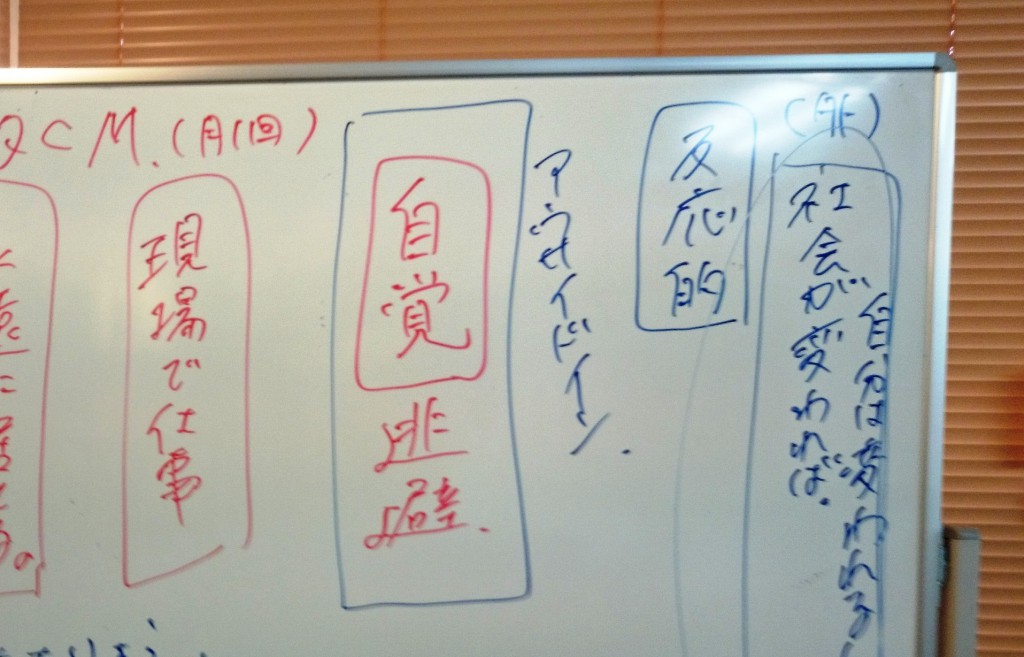 (非)
社会が変われば。
自分は変われる
反応的
アウサイドイン.
自覚
逃避.
QCM.(月1回)
現場で仕事